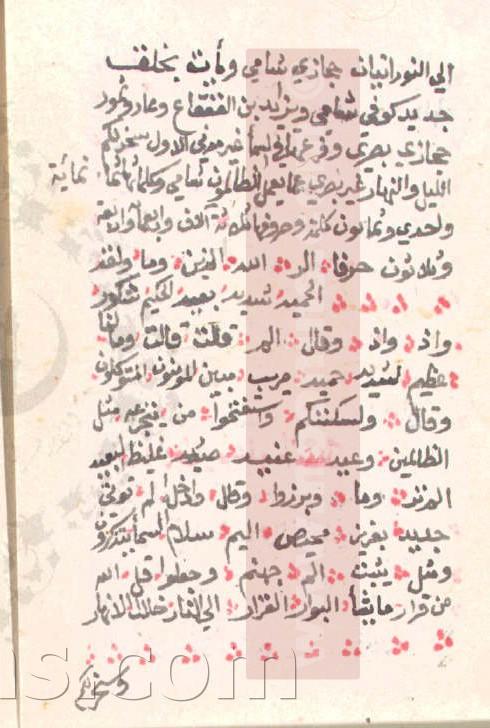 الي النورانيان حجازي شامي ويأت بخلق
جديد كوفي شامي ويزيد بن القعقاع وعاد وثمود
حجازي بصري وفرعها في السما غير مدني الاول سخر لكم
الليل والنهار غير بصري عما يعمل الظالمون شامي وكلماتها ثمانمائة
واحدي وثمانون كلمة وحروفها ثلاثة آلاف واربعمائة واربعة
وثلاثون حرفا الر الله الذين وما ولقد
الحميد شديد بعيد الحكيم شكور
واذ واذ وقال الم قالت قالت وما لنا
عظيم لشديد حميد مريب مبين المؤمنون المتوكلون
وقال ولنسكننكم واستفتحوا من يتجرعه مثل
الظالمين وعيد عنيد صديد غليظ البعيد
الم تر وما وبرزوا وقال وادخل الم تؤتي
جديد بعزيز محيص اليم سلام السما يتذكرون
ومثل يثبت الم جهنم وجعلوا قل الله
من قرار ما يشأ البوار القرار الي النار خلال الانهار
وسخر لكم